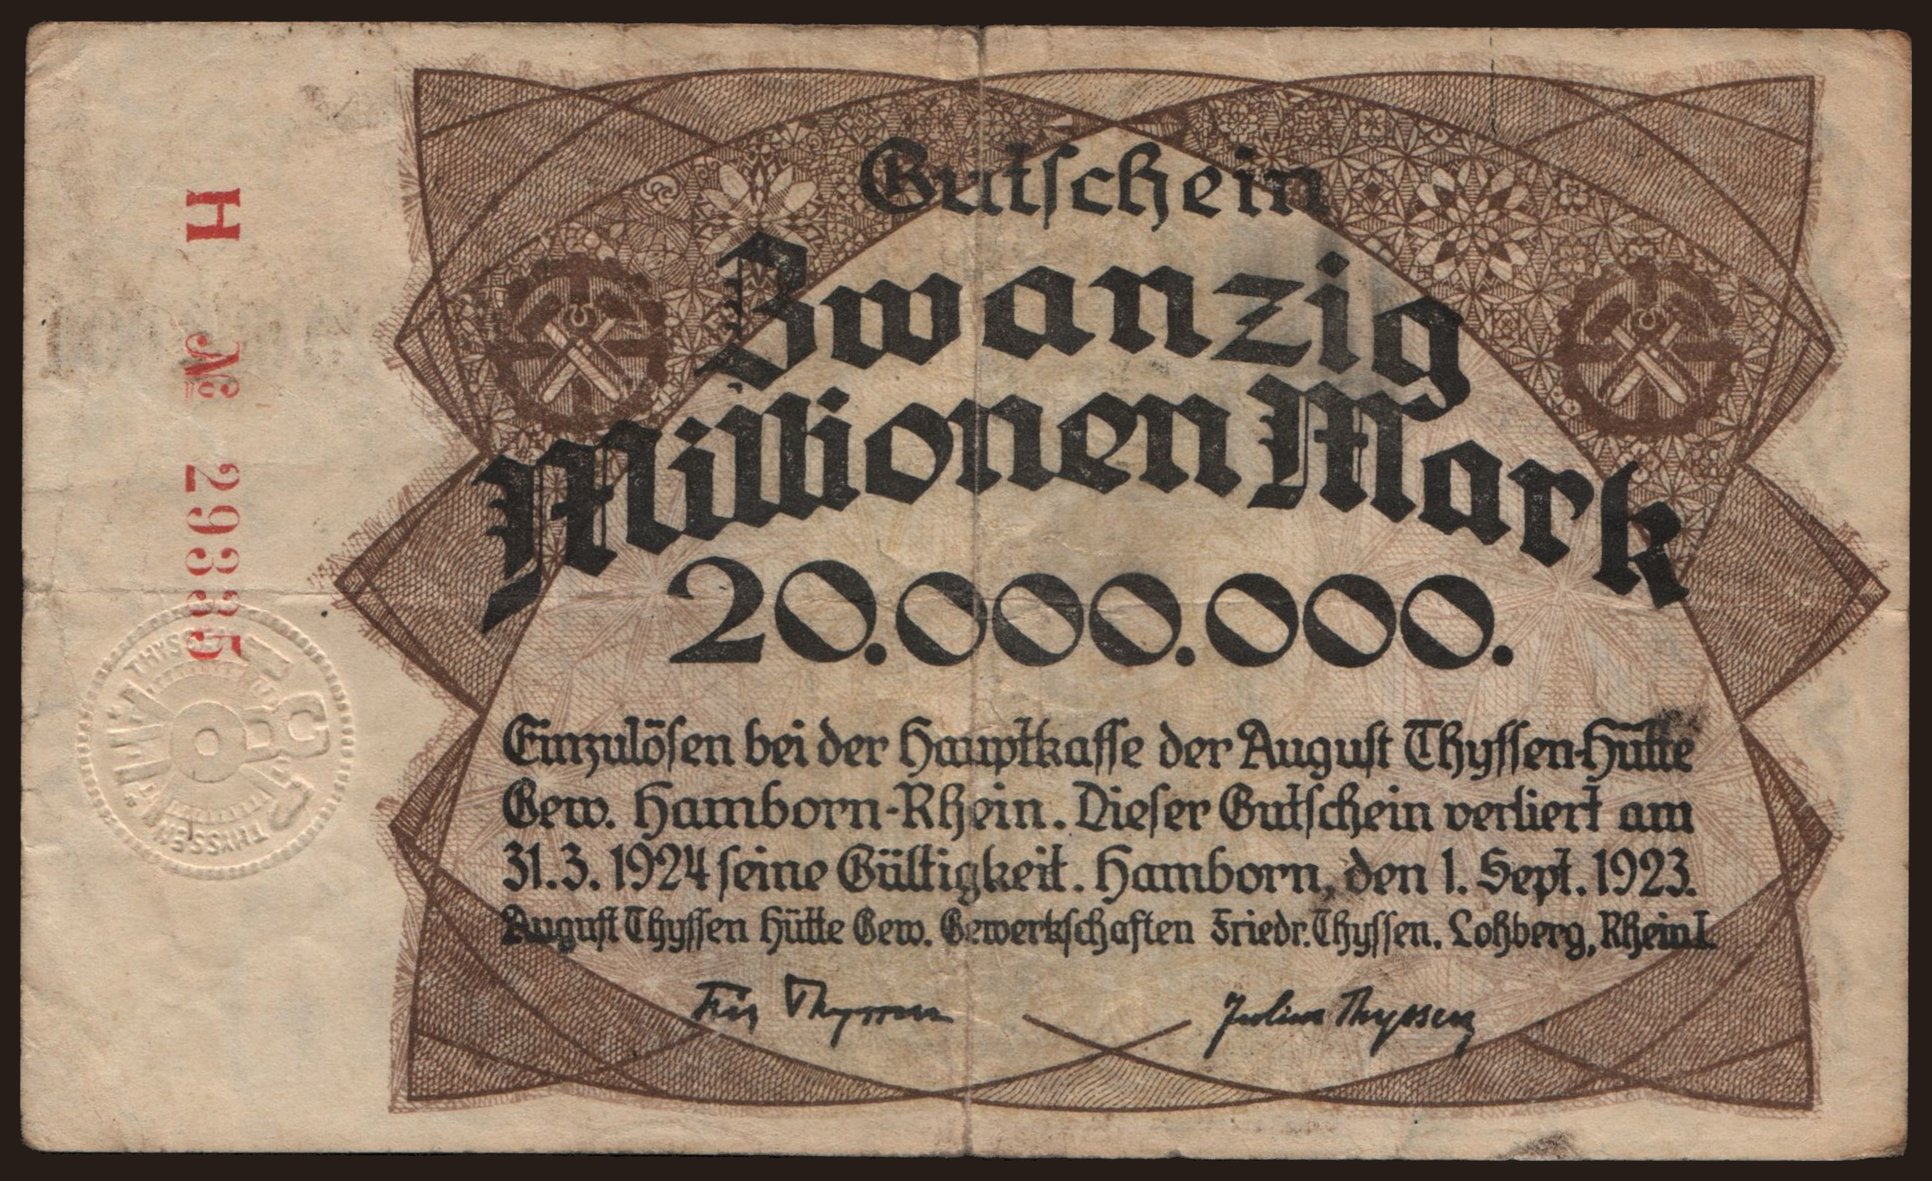 Gutschein
Zwanzig
Millionen Mark
20.000.000.
Einzulösen bei der Hauptkasse der August Thyssen-Hütte
Gew. Hamborn-Rhein. Dieser Gutschein verliert am
31.3.1924 seine Gültigkeit. Hamborn, den 1. Sept. 1923.
August Thyssen Hütte Gew. Gewerkschaften Friedr. Thyssen, Lohberg, Rhein I.
Fritz Thyssen
Julius Thyssen
H № 29335
THYSSEN